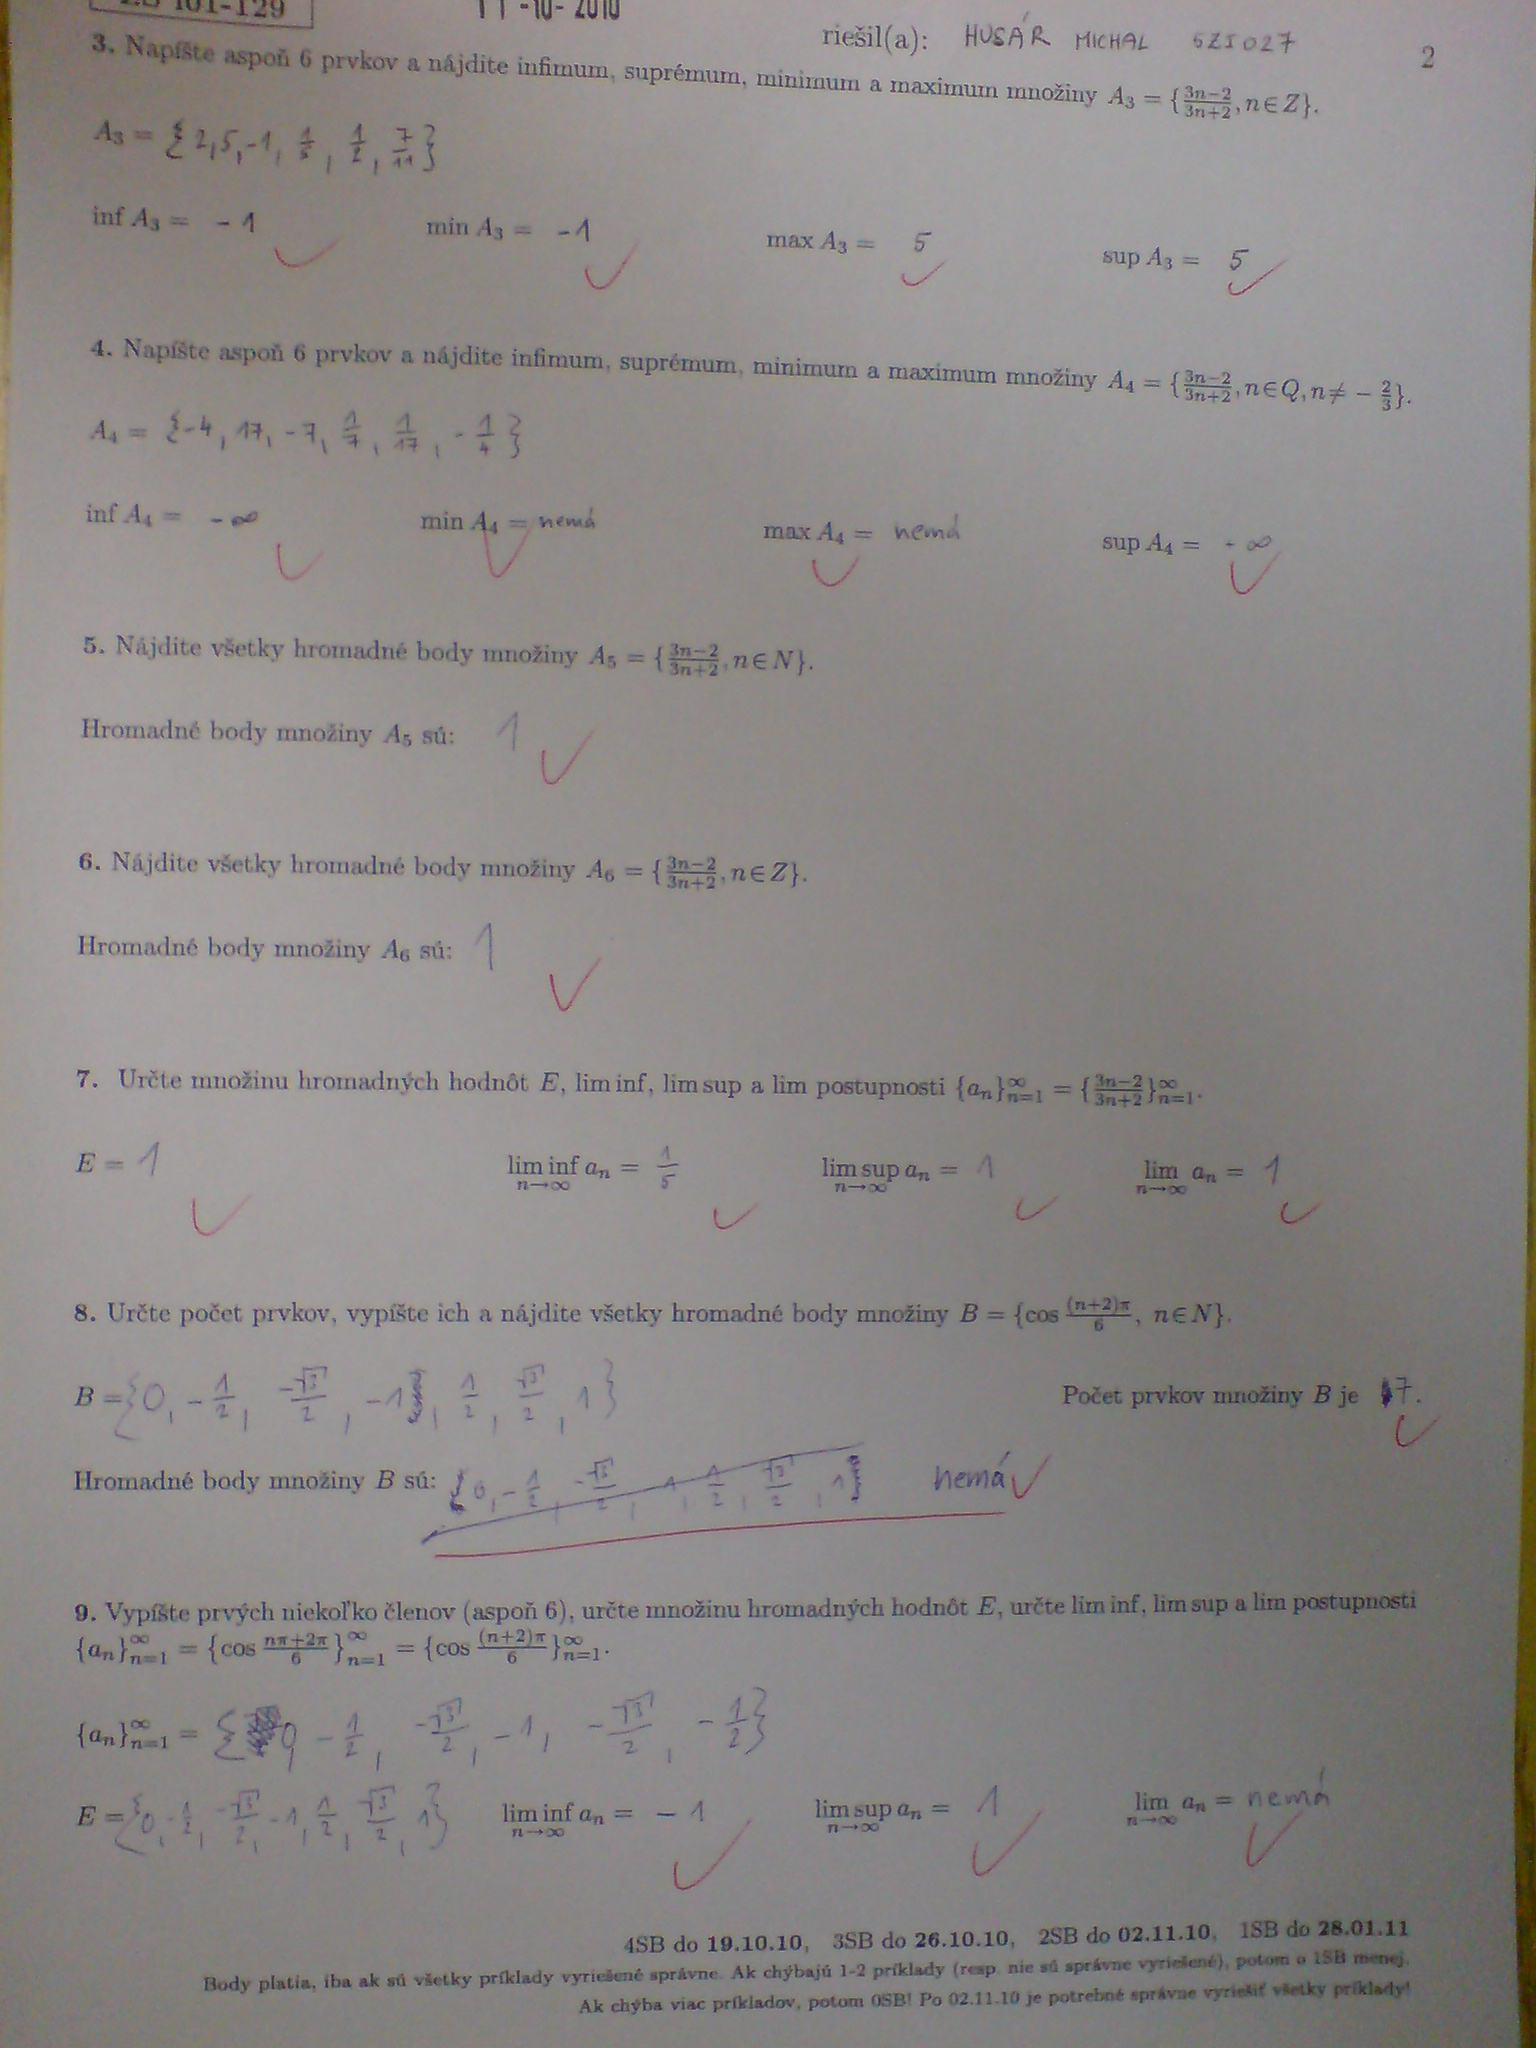 2B 101-129
11-10-2010
riešil(a): HUSÁR MICHAL 5ZI027
2
3. Napíšte aspoň 6 prvkov a nájdite infimum, suprémum, minimum a maximum množiny A₃ = {(3n−2)/(3n+2), n∈Z}.
A₃ = {2, 5, -1, 1/5, 1/2, 7/11}
inf A₃ = -1 ✓ min A₃ = -1 ✓ max A₃ = 5 ✓ sup A₃ = 5 ✓
4. Napíšte aspoň 6 prvkov a nájdite infimum, suprémum, minimum a maximum množiny A₄ = {(3n−2)/(3n+2), n∈Q, n≠ −2/3}.
A₄ = {-4, 17, -7, 1/7, 1/17, -1/4}
inf A₄ = -∞ ✓ min A₄ = nemá ✓ max A₄ = nemá ✓ sup A₄ = -∞ ✓
5. Nájdite všetky hromadné body množiny A₅ = {(3n−2)/(3n+2), n∈N}.
Hromadné body množiny A₅ sú: 1 ✓
6. Nájdite všetky hromadné body množiny A₆ = {(3n−2)/(3n+2), n∈Z}.
Hromadné body množiny A₆ sú: 1 ✓
7. Určte množinu hromadných hodnôt E, lim inf, lim sup a lim postupnosti {aₙ}∞ₙ₌₁ = {(3n−2)/(3n+2)}∞ₙ₌₁.
E = 1 ✓ lim inf n→∞ aₙ = 1/5 ✓ lim sup n→∞ aₙ = 1 ✓ lim n→∞ aₙ = 1 ✓
8. Určte počet prvkov, vypíšte ich a nájdite všetky hromadné body množiny B = {cos (n+2)π/6, n∈N}.
B = {0, -1/2, -√3/2, -1, 1/2, √3/2, 1} Počet prvkov množiny B je 7. ✓
Hromadné body množiny B sú: {0, -1/2, -√3/2, -1, 1/2, √3/2, 1} nemá ✓
9. Vypíšte prvých niekoľko členov (aspoň 6), určte množinu hromadných hodnôt E, určte lim inf, lim sup a lim postupnosti
{aₙ}∞ₙ₌₁ = {cos (nπ+2π)/6}∞ₙ₌₁ = {cos (n+2)π/6}∞ₙ₌₁.
{aₙ}∞ₙ₌₁ = {0, -1/2, -√3/2, -1, -√3/2, -1/2}
E = {0, -1/2, -√3/2, -1, 1/2, √3/2, 1} lim inf n→∞ aₙ = -1 ✓ lim sup n→∞ aₙ = 1 ✓ lim n→∞ aₙ = nemá ✓
4SB do 19.10.10, 3SB do 26.10.10, 2SB do 02.11.10, 1SB do 28.01.11
Body platia, iba ak sú všetky príklady vyriešené správne. Ak chýbajú 1-2 príklady (resp. nie sú správne vyriešené), potom o 1SB menej.
Ak chýba viac príkladov, potom 0SB! Po 02.11.10 je potrebné správne vyriešiť všetky príklady!